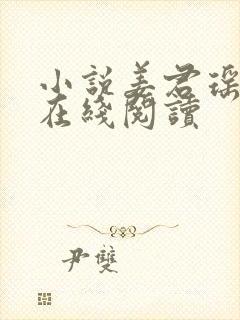 小説姜君瑶
在綫閱讀
尹雙